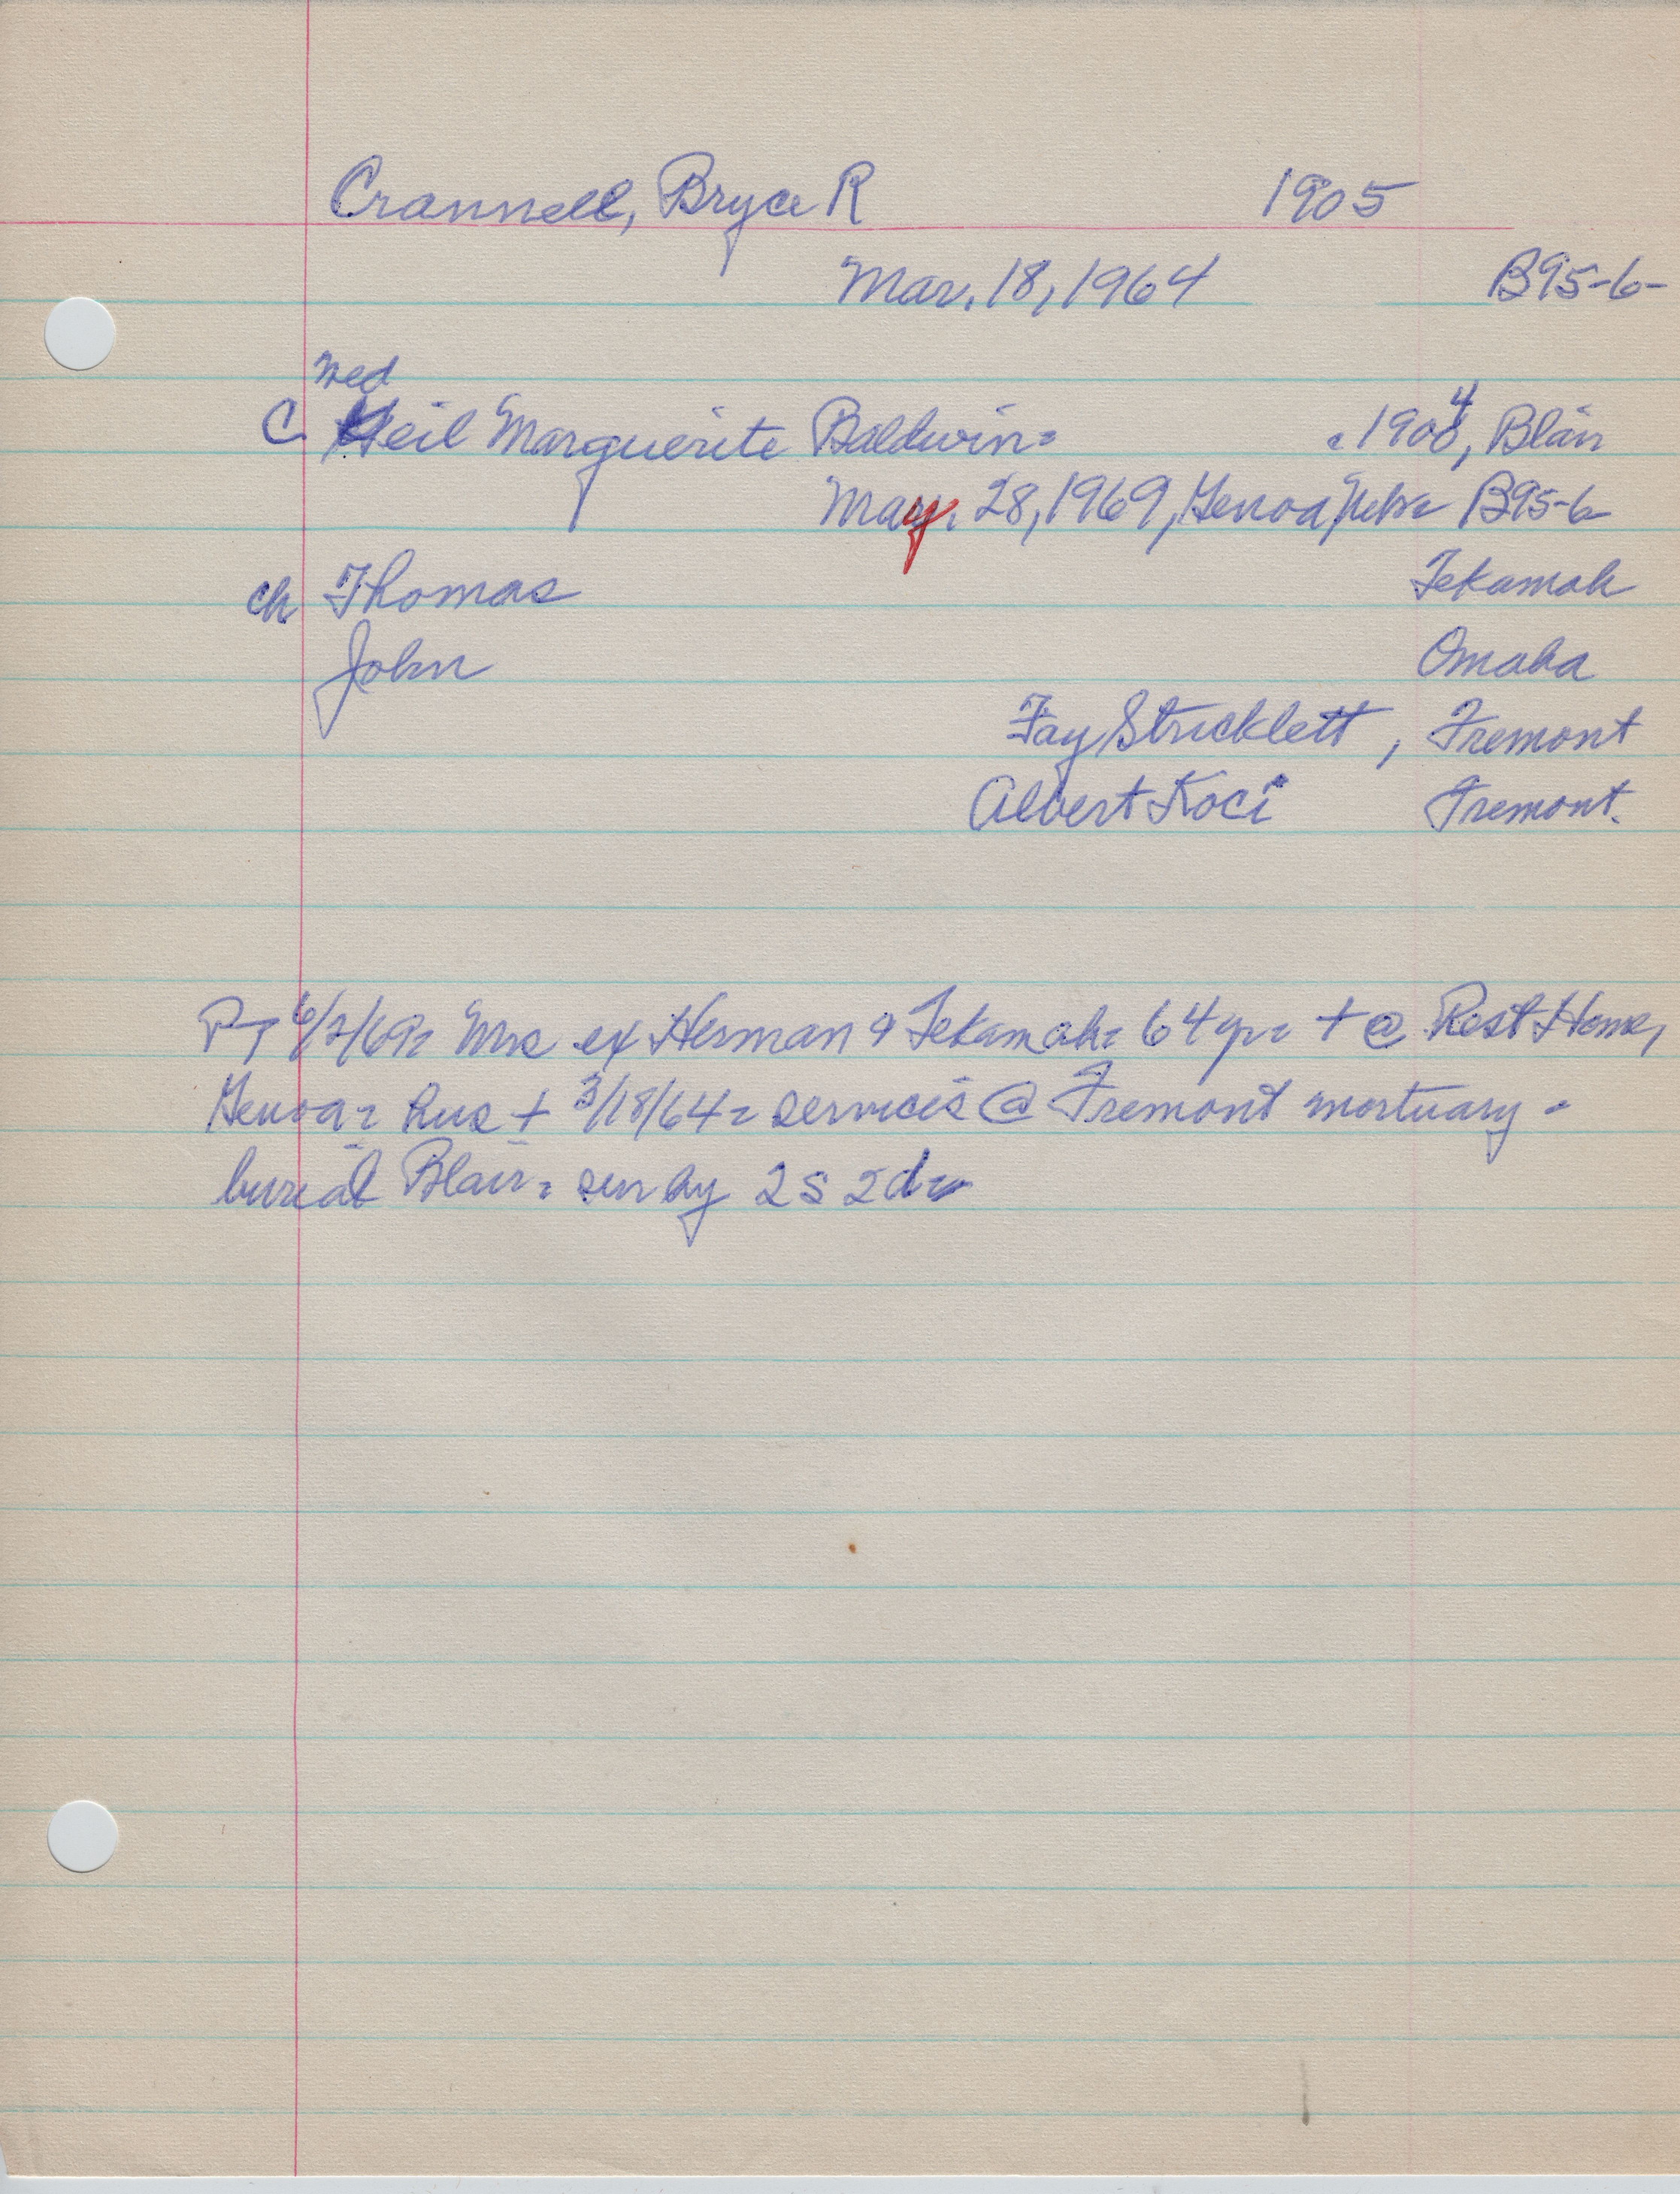 Crannell, Bryce R 1905
Mar. 18, 1964 B95-6-
Wed
C Heil Marguerite Baldwin= 1904, Blair
May. 28, 1969, Genoa Nebr B95-6
ch Thomas Tekamah
John Omaha
Fay Stricklett, Fremont
Albert Koci Fremont.
PT 6/2/69= Mrs ex Herman & Tekamah= 64 yr= + @ Rest Home,
Genoa= hus + 3/18/64= services @ Fremont mortuary -
burial Blair= sur by 2s 2d=